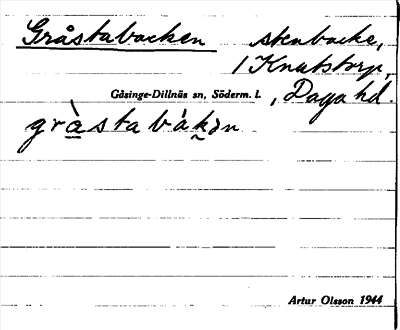 Gråstabacken stenbacke,
i Knutstorp,
Gåsinge-Dillnäs sn, Söderm. l. , Daga hd.
gràstabàkən
Artur Olsson 1944